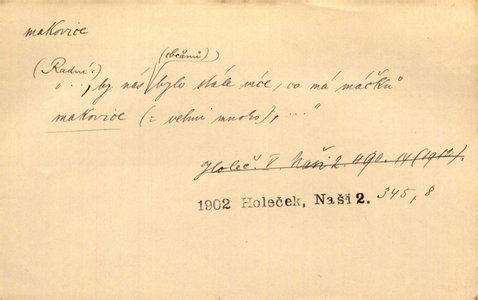 makovice
(občanů)
(Radní:)
"..., by nás bylo stále více, co má máčků
makovice (= velmi mnoho), ..."
Holeč. V Naši 2. 490. 14 (1912).
1902 Holeček, Naši 2. 345, 8